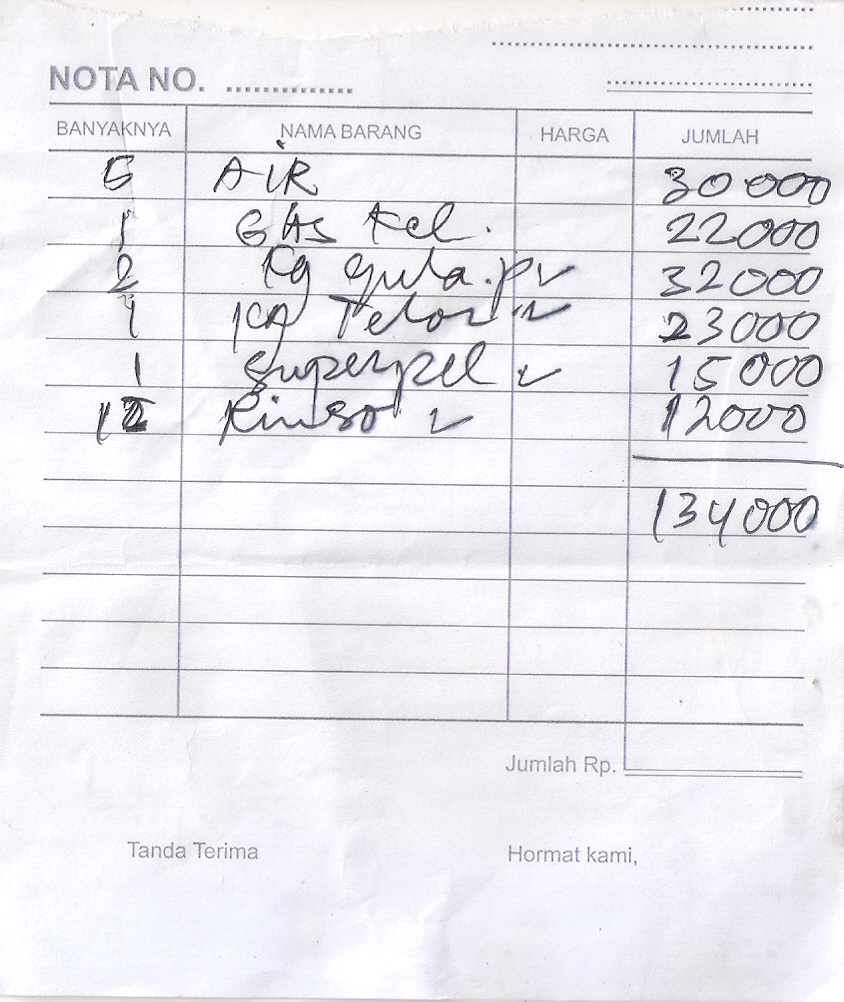 NOTA NO. ................
BANYAKNYA NAMA BARANG HARGA JUMLAH
5 AIR 30000
1 GAS Kel. 22000
2 Kg gula.p ✓ 32000
1 kg Telor ✓ 23000
1 Superpel ✓ 15000
12 Rinso ✓ 12000
134000
Jumlah Rp.
Tanda Terima Hormat kami,